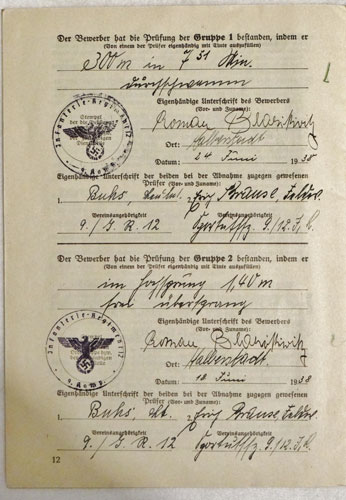 Der Bewerber hat die Prüfung der Gruppe 1 bestanden, indem er
(Von einem der Prüfer eigenhändig mit Tinte auszufüllen)
300 m in 7 31 Min.
durchschwamm
Eigenhändige Unterschrift des Bewerbers
(Vor- und Zuname):
Roman
Ort: Halberstadt
Datum: 24 Juni 1938
Infanterie-Regiment 12
Stempel
9. Komp.
Eigenhändige Unterschrift der beiden bei der Abnahme zugegen gewesenen
Prüfer (Vor- und Zuname):
1. Buhs, 2. Krause,
Vereinsangehörigkeit Vereinsangehörigkeit
9./I.R. 12 9/12. I.R.
Der Bewerber hat die Prüfung der Gruppe 2 bestanden, indem er
(Von einem der Prüfer eigenhändig mit Tinte auszufüllen)
im Hochsprung 1,40 m
übersprang
Eigenhändige Unterschrift des Bewerbers
(Vor- und Zuname):
Roman
Ort: Halberstadt
Datum: 10 Juni 1938
Infanterie-Regiment 12
9. Komp.
Eigenhändige Unterschrift der beiden bei der Abnahme zugegen gewesenen
Prüfer (Vor- und Zuname):
1. Buhs 2. Krause
Vereinsangehörigkeit Vereinsangehörigkeit
9./I.R. 12 9/12. I.R.
12